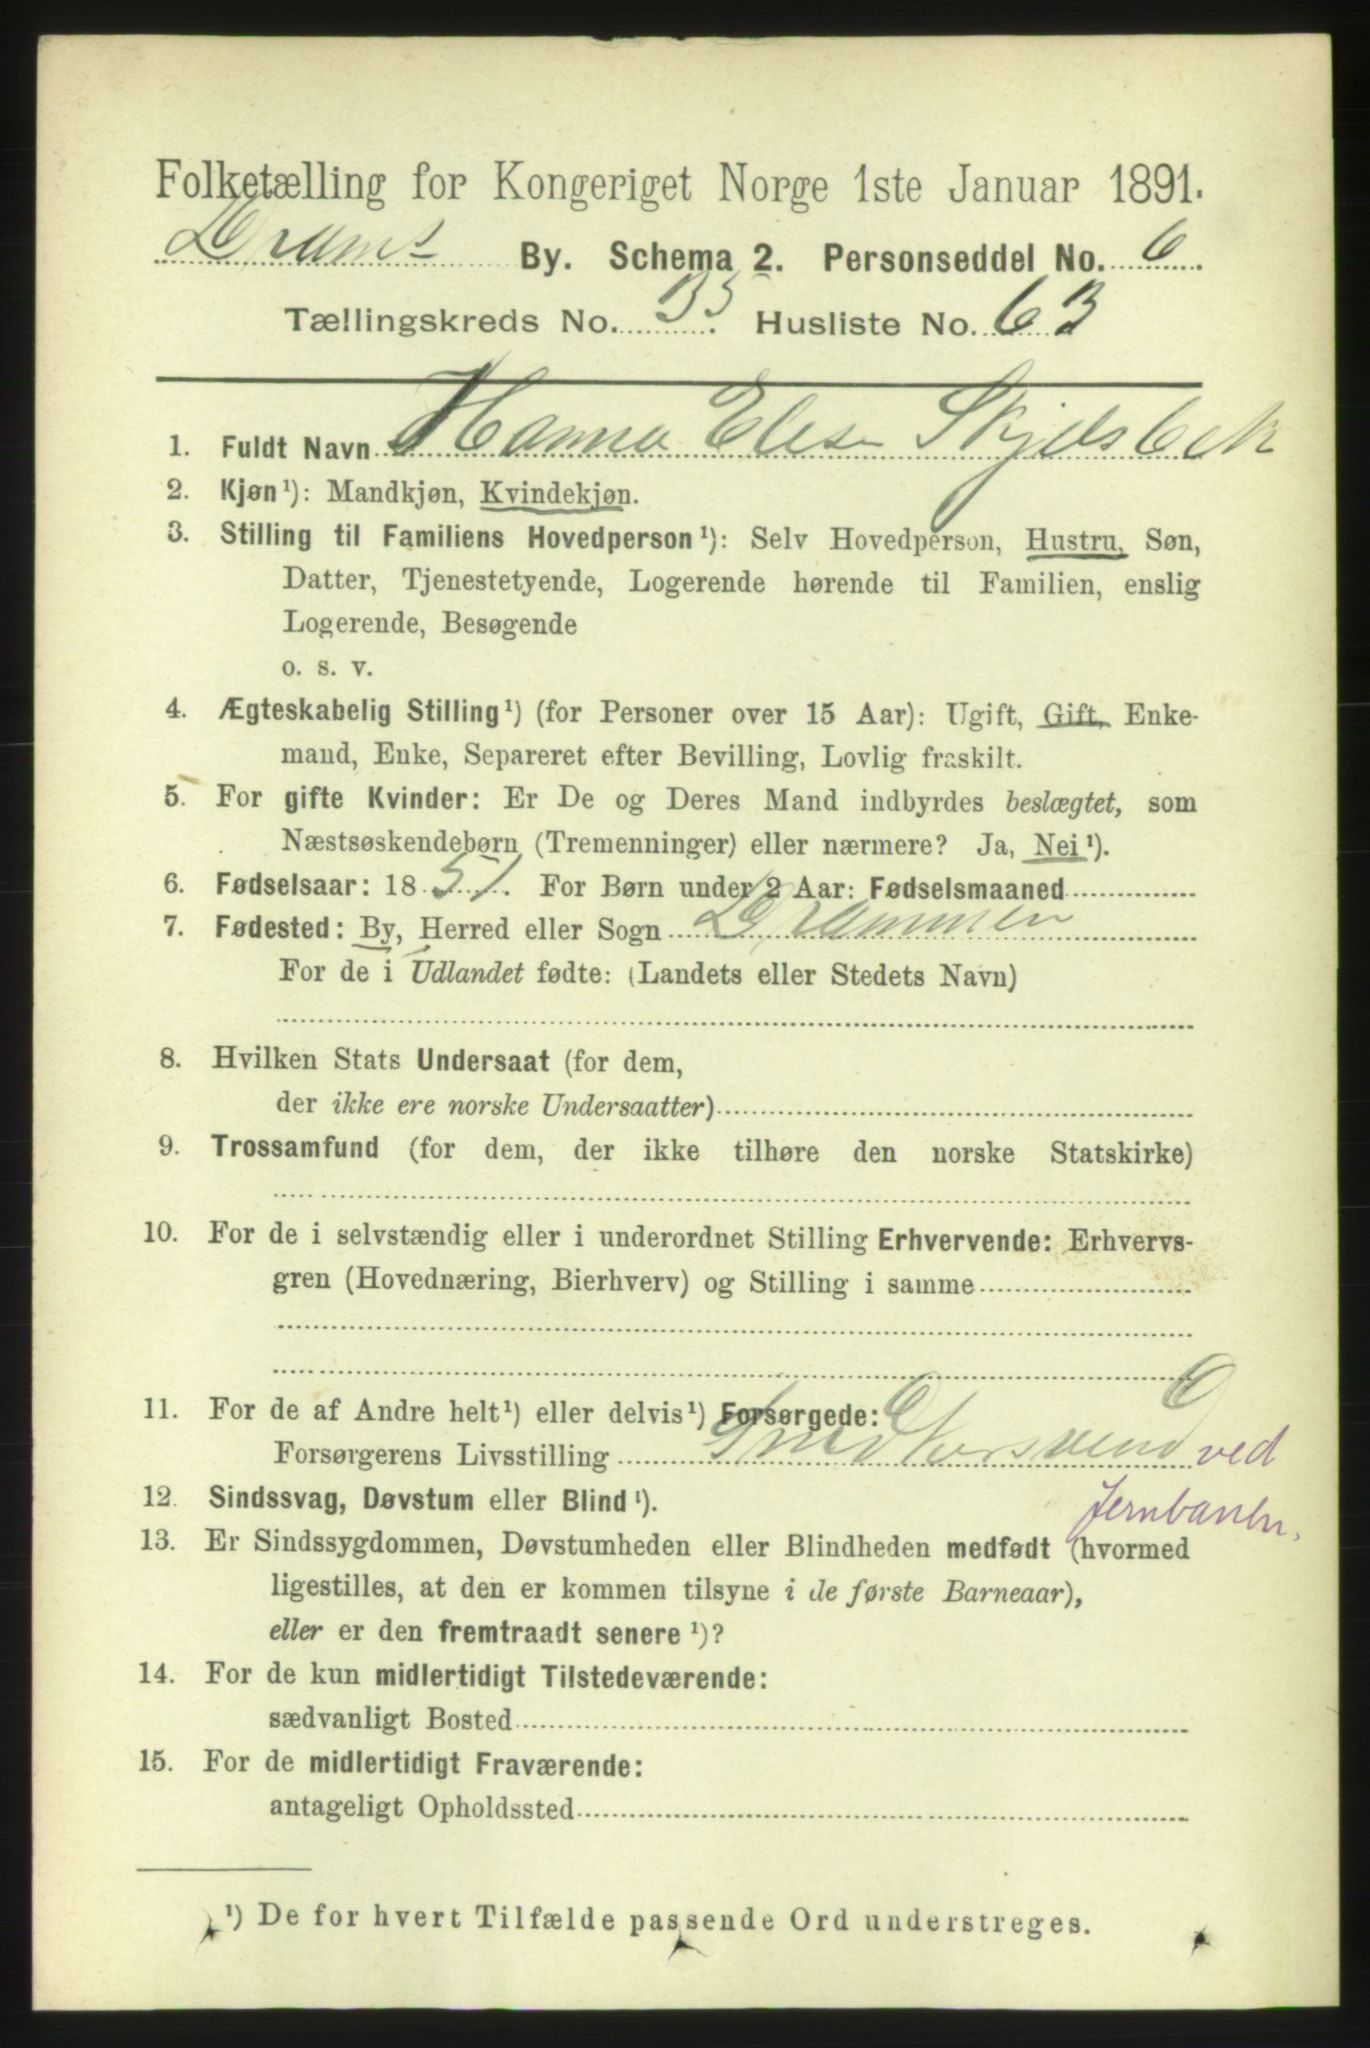 Folketælling for Kongeriget Norge 1ste Januar 1891.
Drams By. Schema 2. Personseddel No. 6.
Tællingskreds No. 35. Husliste No. 63
1. Fuldt Navn Hanna Elise Skjelsbek
2. Kjøn¹): Mandkjøn, Kvindekjøn.
3. Stilling til Familiens Hovedperson¹): Selv Hovedperson, Hustru, Søn,
Datter, Tjenestetyende, Logerende hørende til Familien, enslig
Logerende, Besøgende
o. s. v.
4. Ægteskabelig Stilling¹) (for Personer over 15 Aar): Ugift, Gift, Enke-
mand, Enke, Separeret efter Bevilling, Lovlig fraskilt.
5. For gifte Kvinder: Er De og Deres Mand indbyrdes beslægtet, som
Næstsøskendebørn (Tremenninger) eller nærmere? Ja, Nei¹).
6. Fødselsaar: 1851. For Børn under 2 Aar: Fødselsmaaned
7. Fødested: By, Herred eller Sogn Drammen
For de i Udlandet fødte: (Landets eller Stedets Navn)
8. Hvilken Stats Undersaat (for dem,
der ikke ere norske Undersaatter)
9. Trossamfund (for dem, der ikke tilhøre den norske Statskirke)
10. For de i selvstændig eller i underordnet Stilling Erhvervende: Erhvervs-
gren (Hovednæring, Bierhverv) og Stilling i samme
11. For de af Andre helt¹) eller delvis¹) Forsørgede:
Forsørgerens Livsstilling Snedkersvend ved
Jernbanen.
12. Sindssvag, Døvstum eller Blind¹).
13. Er Sindssygdommen, Døvstumheden eller Blindheden medfødt (hvormed
ligestilles, at den er kommen tilsyne i de første Barneaar),
eller er den fremtraadt senere¹)?
14. For de kun midlertidigt Tilstedeværende:
sædvanligt Bosted
15. For de midlertidigt Fraværende:
antageligt Opholdssted
¹) De for hvert Tilfælde passende Ord understreges.